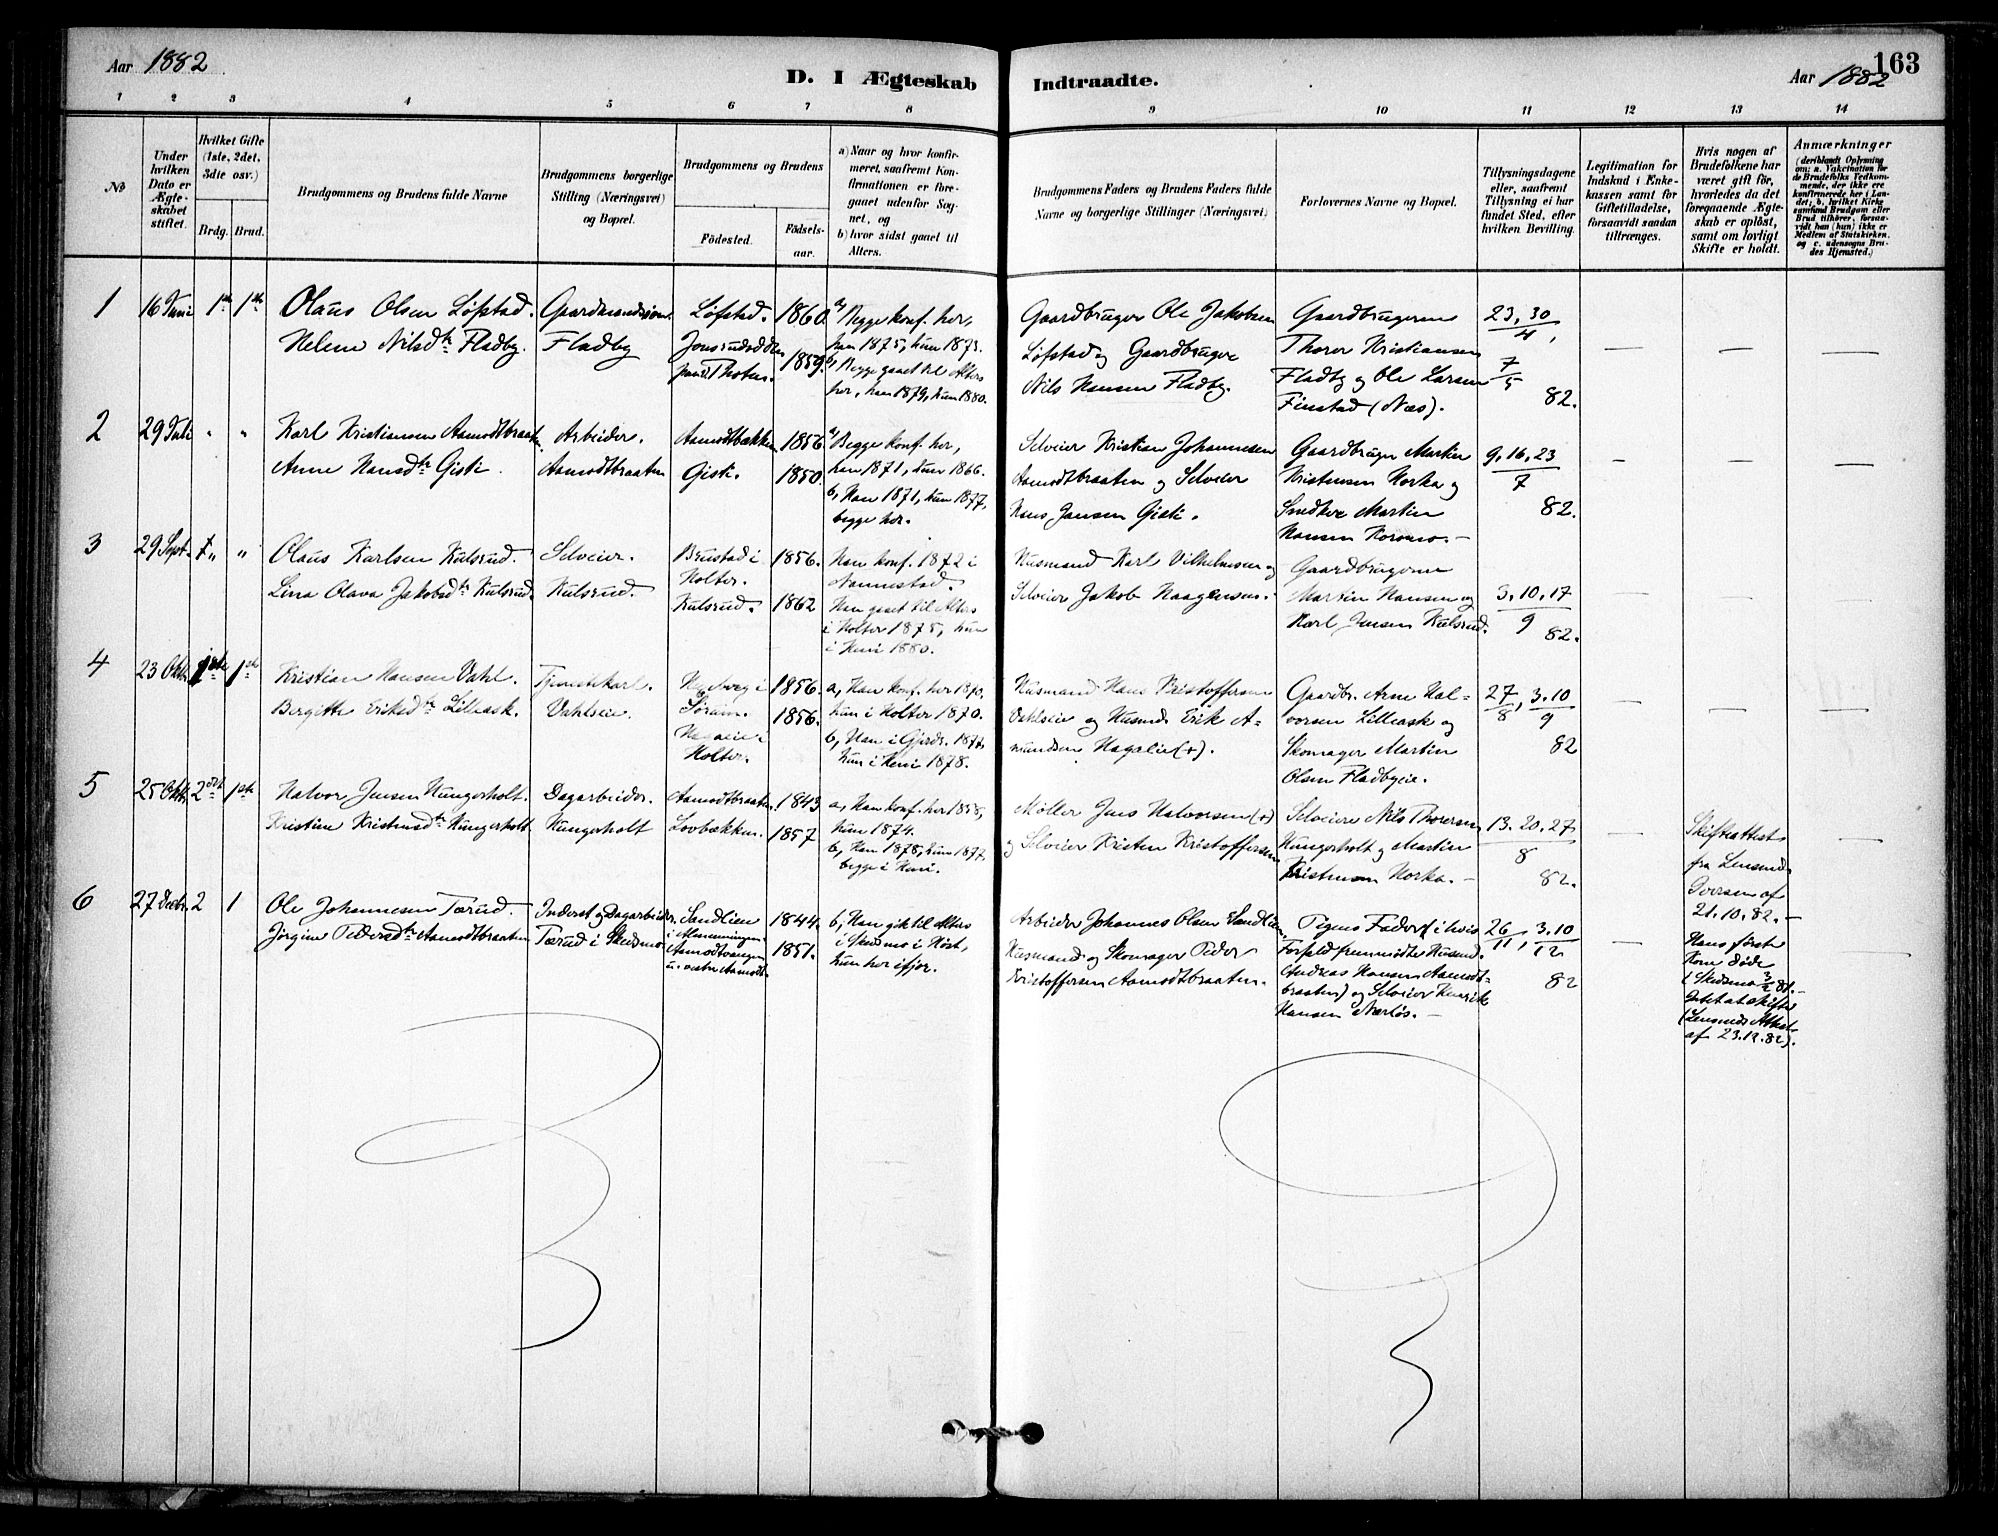 Aar 1882
D. I Ægteskab
Indtraadte.
Aar 1882
163
1 2 3 4 5 6 7 8
9 10 11 12 13 14
No
Under hvilken Dato er Ægteskabet stiftet.
Hvilket Gifte (1ste, 2det, 3die osv.)
Brdg. Brud.
Brudgommens og Brudens fulde Navne
Brudgommens borgerlige Stilling (Næringsvei) og Bopæl.
Brudgommens og Brudens
Födested.
Födsels-aar.
a) Naar og hvor konfirmeret, saafremt Konfirmationen er foregaaet udenfor Sognet, og
b) hvor sidst gaaet til Alters.
Brudgommens Faders og Brudens Faders fulde Navne og borgerlige Stillinger (Næringsvei)
Forlovernes Navne og Bopæl.
Tillysningsdagene eller, saafremt Tillysning ei har fundet Sted, efter hvilken Bevilling.
Legitimation for Indskud i Enkekassen samt for Giftetilladelse, forsaavidt saadan tiltrænges.
Hvis nogen af Brudefolkene har været gift för, hvorledes da det foregaaende Ægteskab er oplöst, samt om lovligt Skifte er holdt.
Anmærkninger
(deriblandt Oplysning om: a. Vakcination for de Brudefolks Vedkommende, der ikke ere konfirmerede her i Landet; b. hvilket Kirkesamfund Brudgom eller Brud tilhörer, forsaavidt han (hun) ikke er Medlem af Statskirken. og c. udensogns Brudes Hjemsted.)
1 16 Juni 1ste 1ste
Olaus Olsen Løfstad. Gaardmandssøn Løfstad. 1860.
Helene Nilsdtr Fladby. Fladby 1859.
a, Begge konf. her,
han 1875, hun 1873.
b, Begge gaaet til Alters
her, han 1879, hun 1880.
Gaardbruger Ole Jakobsen
Løfstad og Gaardbruger
Nils Hansen Fladby.
Gaardbrugerne
Thorer Kristiansen
Fladby og Ole Larsen
Finstad (Næs).
23, 30/4, 7/5 82.
2 29 Juli " "
Karl Kristiansen Aamodtbraaten. Arbeider. Aamodtbækken 1856
Anne Hansdtr Gisti. Aamodtbraaten Gisti. 1850.
a, Begge konf. her,
han 1871, hun 1866.
b, Han 1871, hun 1877,
begge her.
Selveier Kristian Johannesen
Aamodtbraaten og Selveier
Hans Jansen Gisti.
Gaardbruger Martin
Kristensen Horka og
Snedker Martin
Hansen Koromo.
9, 16, 23/7 82.
3 29 Sept. " "
Olaus Karlsen Kulsrud. Selveier. Brustad i Holter. 1856.
Lina Olava Jakobsdtr Kulsrud. Kulsrud. Kulsrud. 1862
Han konf. 1872 i
Nannestad.
Han gaaet til Alters
i Holter 1875, hun
i Heni 1880.
Husmand Karl Vilhelmsen og
Selveier Jakob Haagensen.
Gaardbrugerne
Martin Hansen og
Karl Jensen Kulsrud.
3, 10, 17/9 82.
4 23 Oktr. 1ste 1ste
Kristian Hansen Vahl. Tjenestekarl. Sørum. 1856.
Bergitte Eriksdtr Lilleask. Vahlseie. Holter. 1856.
a, Han konf. her 1870.
hun i Holter 1870.
b, Han i Gjerdr. 1877,
hun i Heni 1878.
Husmand Hans Kristoffersen
Vahlseie og Husmd. Erik A-
mundsen Hagaleie (+).
Gaardbr. Arne Hal-
vorsen Lilleask og
Skomager Martin
Olsen Fladbyeie.
27/8, 3.10/9 82
5 25 Oktr. 2det 1ste
Halvor Jensen Hungerholt. Dagarbeider. Aamodtbraaten. 1843
Kristine Kristensdtr Hungerholt. Hungerholt Lovbækken. 1857
a, Han konf. her 1858,
hun 1874.
b, Han 1878, hun 1877,
begge i Heni.
Møller Jens Halvorsen (+)
og Selveier Kristen Kristoffersen
Selveier Nils Thorersen
Hungerholt og Martin
Kristensen Horka.
13. 20. 27/8 82.
Skifteattest
fra Lensmd.
Iversen af
21.10.82.
6 27 Decbr. 2 1
Ole Johannesen Tærud. Inderst og Dagarbeider. Sandlien i Almenningen 1844.
Jørgine Pedersdtr Aamodtbraaten Tærud i Skedsmo Aamodtvangen u. vestre Aamodt 1851.
b, Han gik til Alters
i Skedsmo i Høst,
hun her ifjor.
Arbeider Johannes Olsen Sandlien.
Husmand og Skomager Peder
Kristoffersen Aamodtbraaten.
Pigens Fader (i hvis
Forfald fremmødte Husmd.
Andreas Hansen Aamodt-
braaten) og Selveier Henrik
Hansen Nærløs.
26/11, 3.10/12 82
Hans første
Kone døde
(Skedsmo 3/2 81.
Intet at skifte
(Lensmds Attest
af 23.12.82).